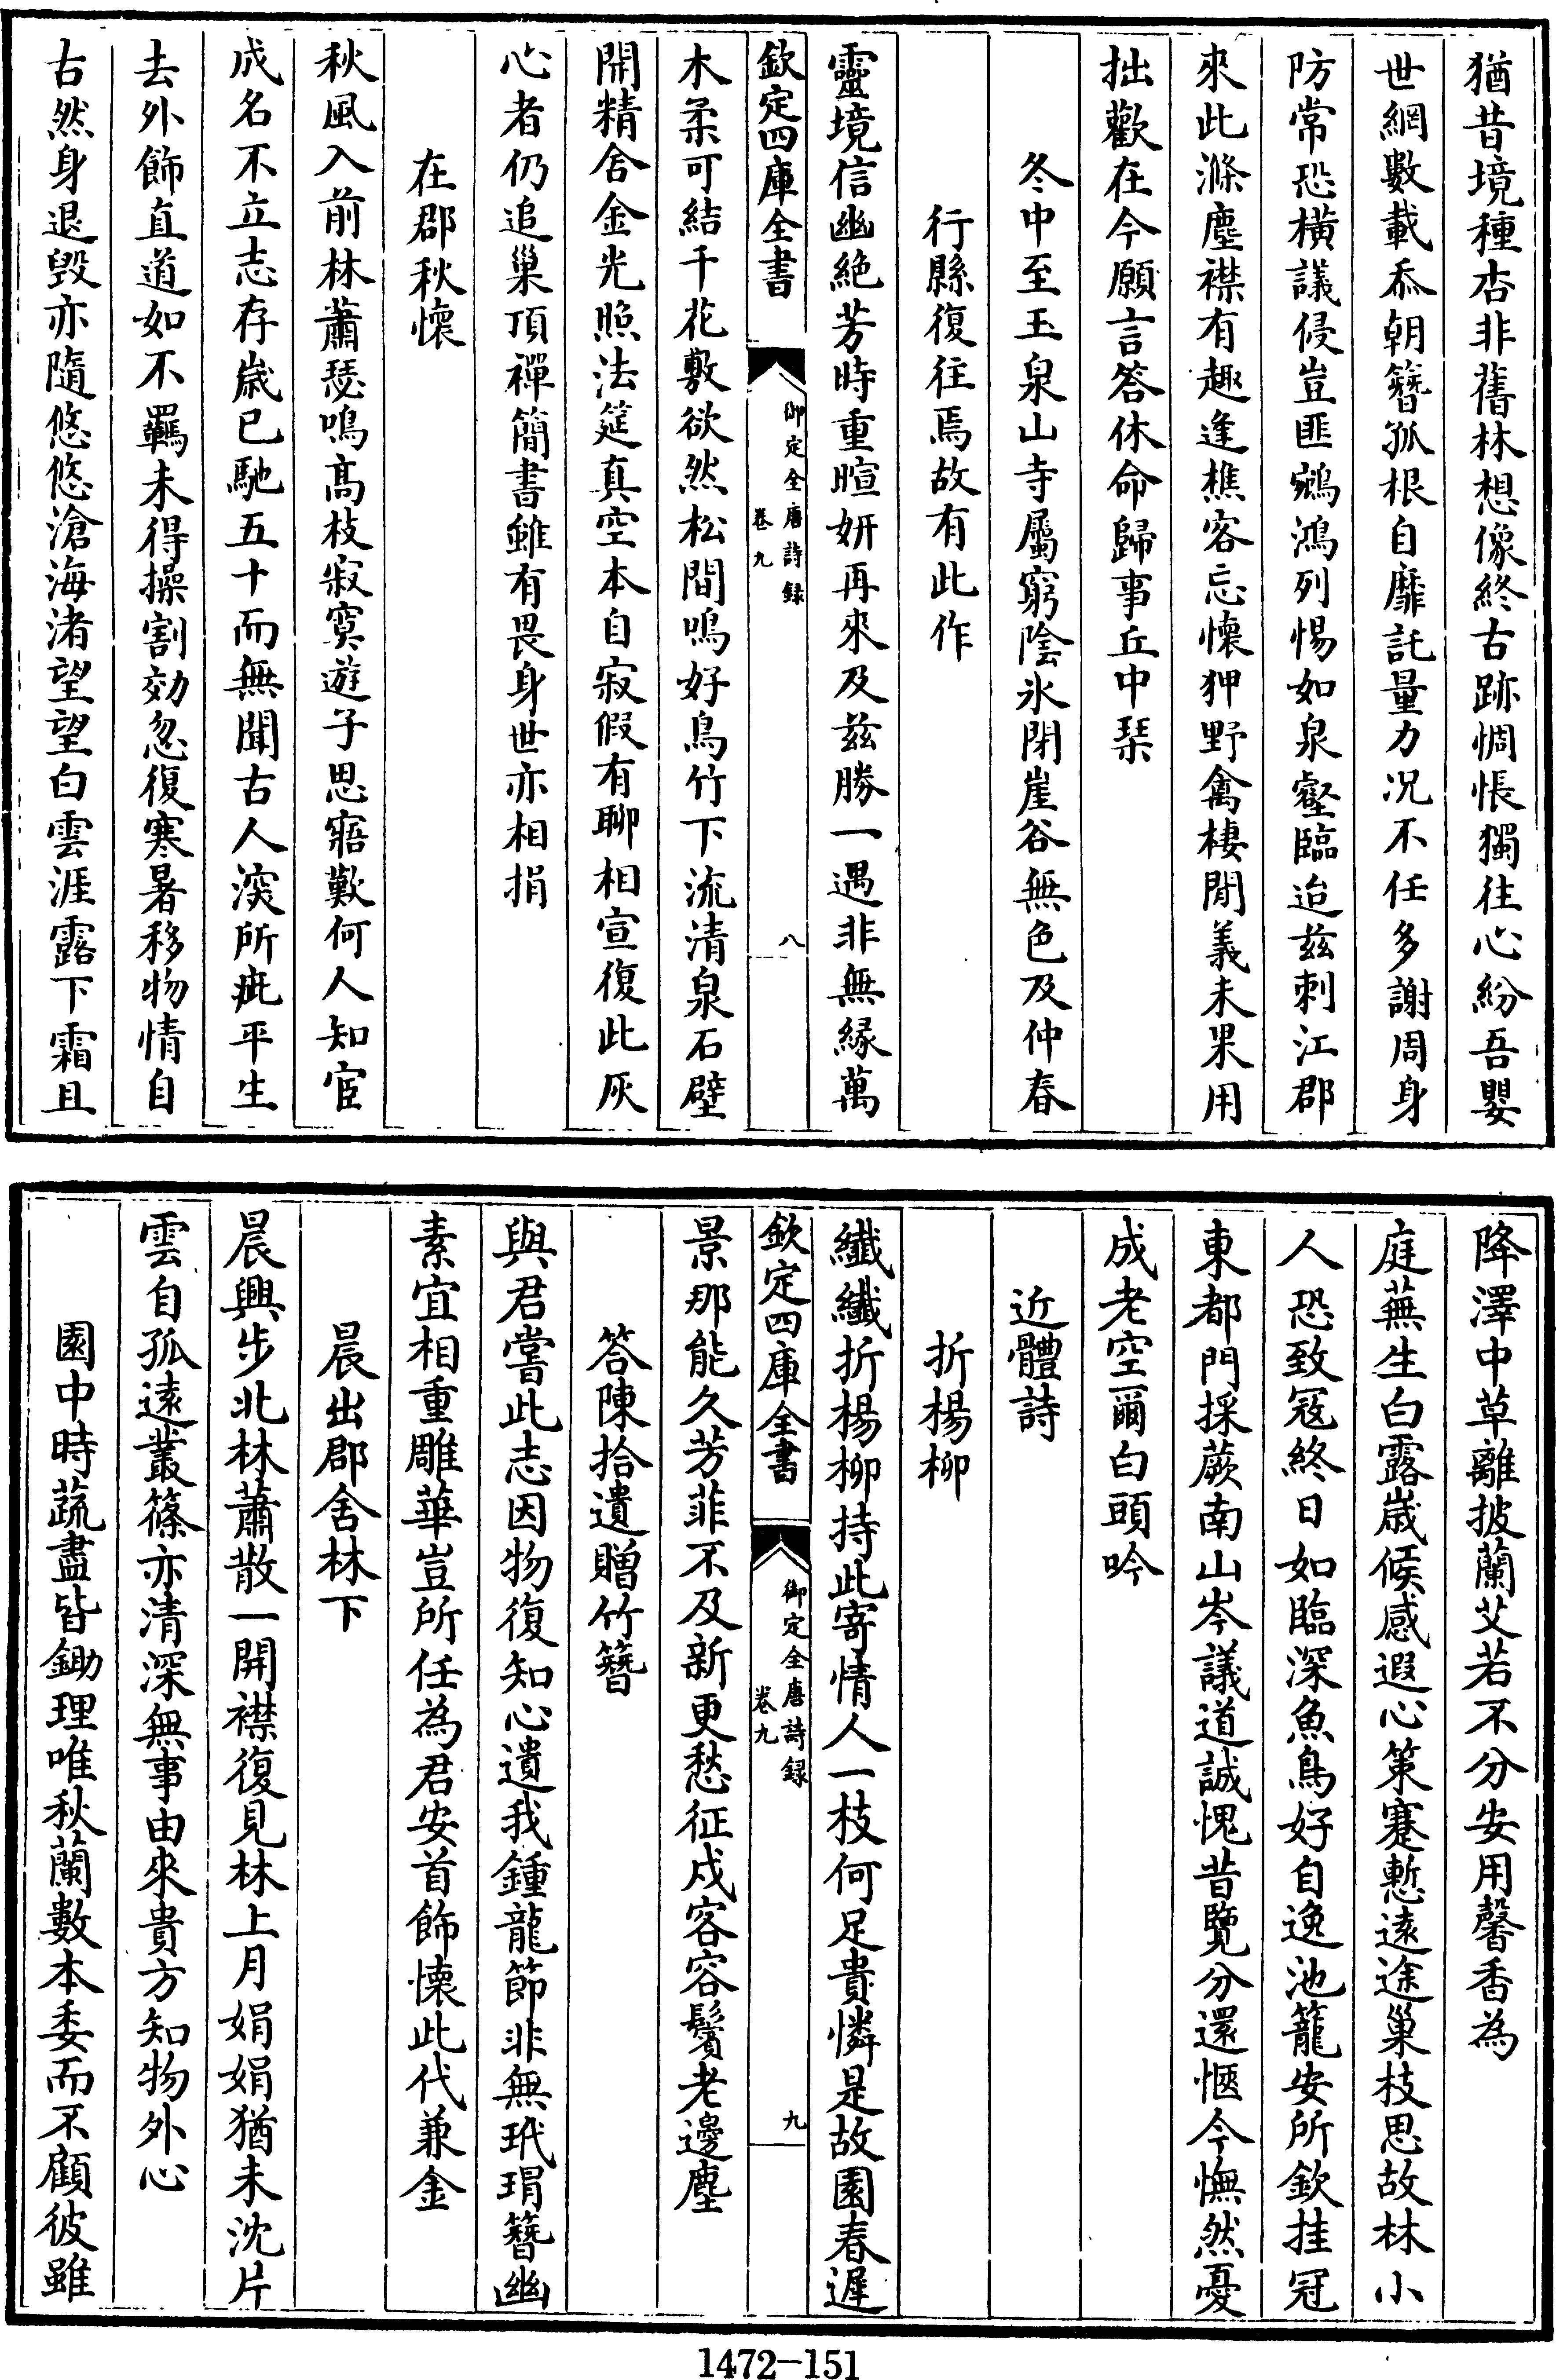 猶昔境種杏非舊林想像終古跡惆悵獨往心紛吾嬰
世網數載忝朝簪孤根自靡託量力况不任多謝周身
防常恐橫議侵豈匪鵷鴻列惕如泉壑臨迨兹刺江郡
來此滌塵襟有趣逢樵客忘懷狎野禽棲閒義未果用
拙歡在今願言答休命歸事丘中琹
冬中至玉泉山寺屬窮陰氷閉崖谷無色及仲春
行縣復往焉故有此作
靈境信幽絶芳時重暄妍再來及兹勝一遇非無緣萬
欽定四庫全書
御定全唐詩録
卷九
八
木柔可結千花敷欲然松間鳴好鳥竹下流清泉石壁
開精舍金光照法筵真空本自寂假有聊相宣復此灰
心者仍追巢頂禪簡書雖有畏身世亦相捐
在郡秋懷
秋風入前林蕭瑟鳴髙枝寂寞遊子思寤歎何人知宦
成名不立志存嵗已馳五十而無聞古人深所疵平生
去外飾直道如不羈未得操割効忽復寒暑移物情自
古然身退毁亦隨悠悠滄海渚望望白雲涯露下霜且
降澤中草離披蘭艾若不分安用馨香為
庭蕪生白露嵗候感遐心策蹇慙逺途巢枝思故林小
人恐致冦終日如臨深魚鳥好自逸池籠安所欽挂冠
東都門採蕨南山岑議道誠愧昔覽分還愜今憮然憂
成老空爾白頭吟
近體詩
折楊柳
纖纖折楊柳持此寄情人一枝何足貴憐是故園春遲
欽定四庫全書
御定全唐詩録
卷九
九
景那能久芳菲不及新更愁征戍客容鬢老邊塵
答陳拾遺贈竹簪
與君嘗此志因物復知心遺我鍾龍節非無玳瑁簪幽
素宜相重雕華豈所任為君安首飾懷此代兼金
晨出郡舍林下
晨興步北林蕭散一開襟復見林上月娟娟猶未沈片
雲自孤逺叢篠亦清深無事由來貴方知物外心
園中時蔬盡皆鋤理唯秋蘭數本委而不顧彼雖
1472—151